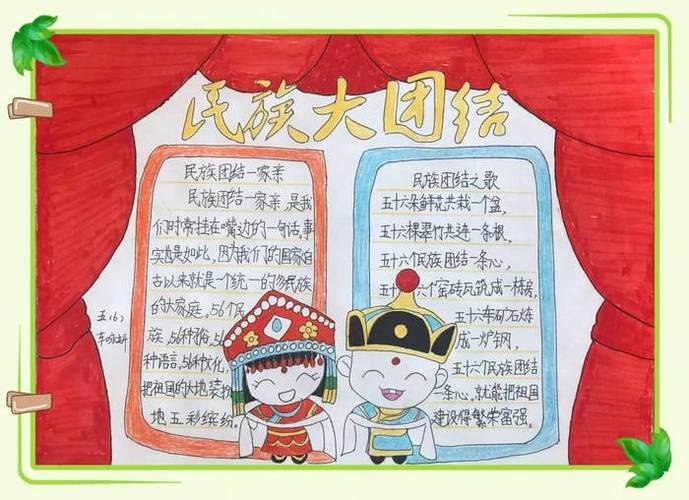 民族大团结
民族团结一家亲
民族团结一家亲,是我
们时常挂在嘴边的一句话,事
实也是如此,因为我们的国家自
古以来就是一个统一的多民族
的大家庭。56个民
族,56种习俗,5
种语言,56种文化,
把祖国的大地装扮
地五彩缤纷。
民族团结之歌
五十六朵鲜花共栽一个盆,
五十六棵翠竹共进一条根,
五十六个民族团结一条心,
五十六个窑砖瓦筑成一栋房,
五十六车矿石炼
成一炉钢,
五十六个民族团结
一条心,就能把祖国
建设得繁荣富强。
五(6)